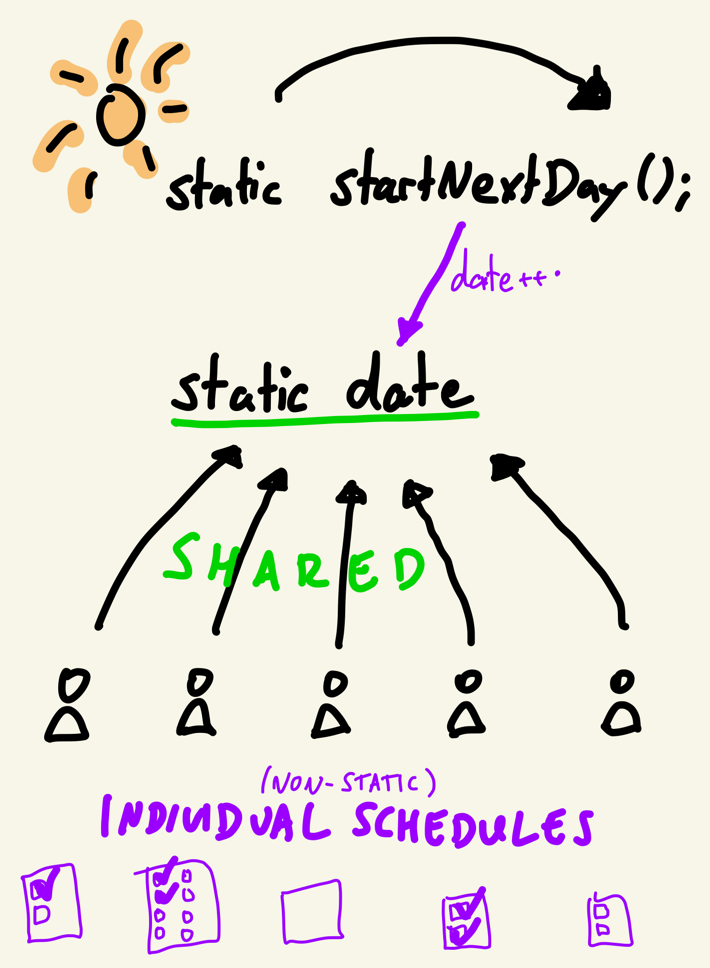 static startNextDay();
date++.
static date
SHARED
(NON-STATIC)
INDIVIDUAL SCHEDULES